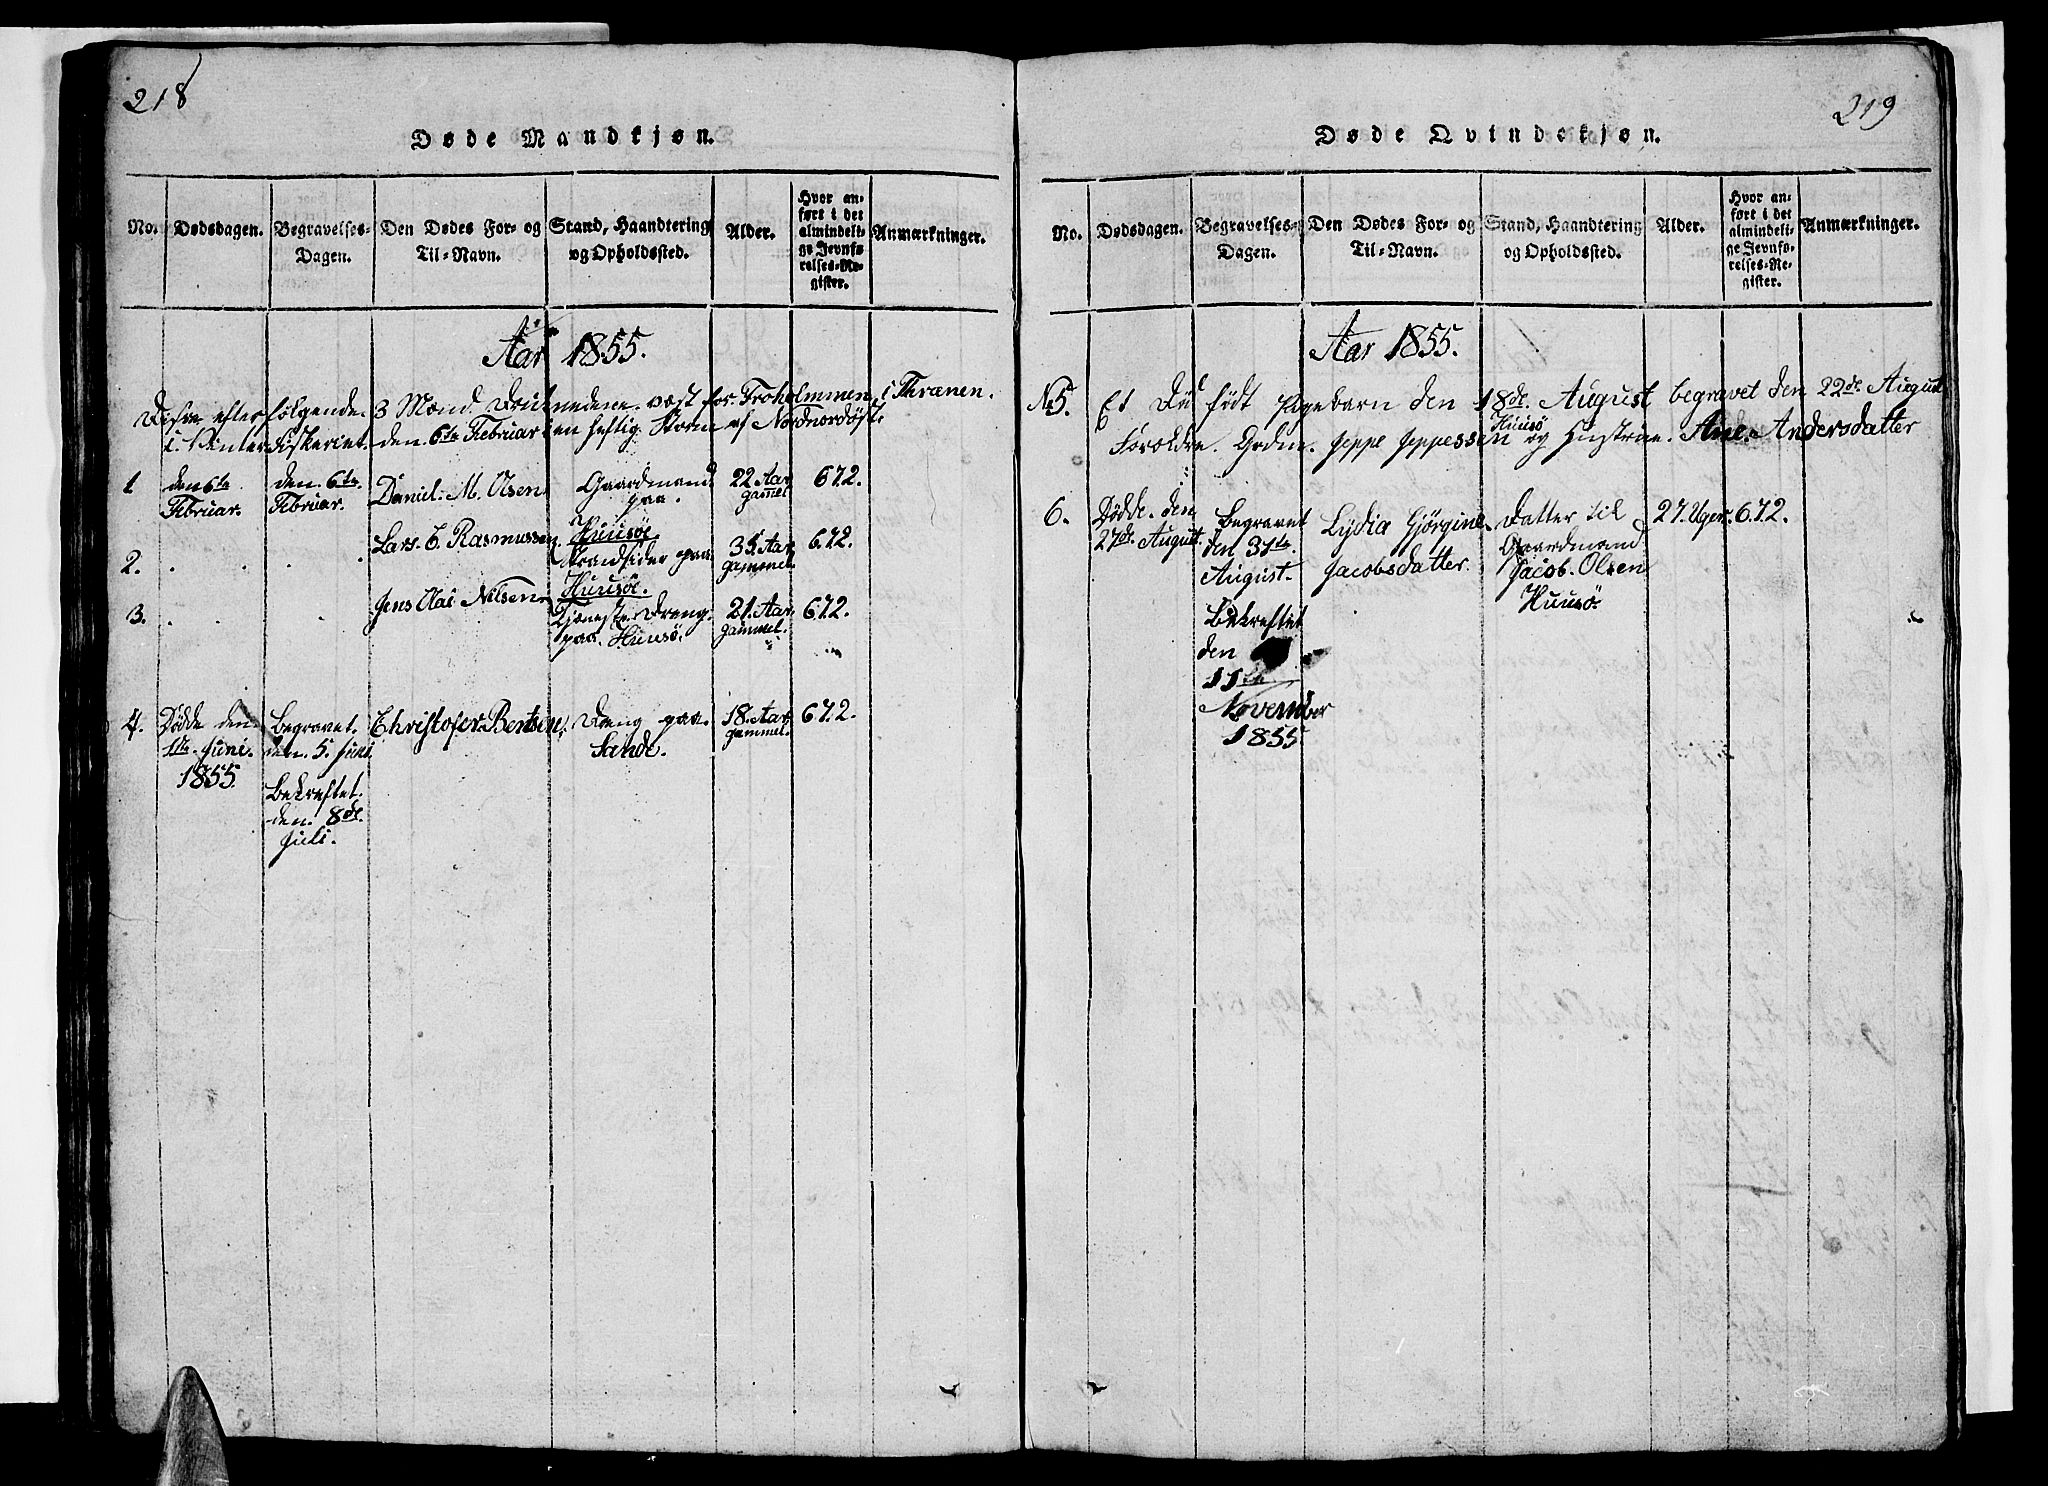 218
Døde Mandkjøn.
No.
Dødsdagen.
Begravelses-
Dagen.
Den Dødes For- og
Til-Navn.
Stand, Haandtering
og Opholdssted.
Alder.
Hvor an-
ført i det
almindeli-
ge Jevnfø-
relses-Re-
gister.
Anmærkninger.
Aar 1855.
Disse efterfølgende 3 Mænd Druknedene væst for Froholmmen i Thrænen.
i Vinterfiskeriet den 6te Februar i en heftig Storm af Nordnordøst
1
den 6te
Februar.
den 6te
Februar.
Daniel M. Olsen
Gaardmand
paa
Huusø
22 Aar
gammel
672.
2.
Lars E. Rasmussen
Strandsider paa
Huusø.
35 Aar
gammel.
672.
3.
Jens Nilsen
Tjeneste Dreng
paa Huusø.
21 Aar
gammel.
672.
4.
Dødde den
1te Juni
1855.
Begravet
den 5. Juni
Bekreftet
den 8de
Juli.
Christofer Bentsen
Dreng paa
Sande.
18 Aar
gammel.
672.
219
Døde Qvindekjøn.
No.
Dødsdagen.
Begravelses-
Dagen.
Den Dødes For- og
Til-Navn.
Stand, Haandtering
og Opholdssted.
Alder.
Hvor an-
ført i det
almindeli-
ge Jevnfø-
relses-Re-
gister.
Anmærkninger.
Aar 1855.
No 5.
Et Dødfødt Pigebarn den 18de August begravet den 22de August
Forældre. Grdm. Jeppe Jeppessen Huusø og Hustrue. Ane Andersdatter
6.
Dødde den
27de August.
Begravet
den 31te
August.
Bekreftet
den
11te
November
1855
Lydia Gjørgine
Jacobsdatter.
Datter til
Gaardmand
Jacob Olsen
Huusø.
27 Uger
672.